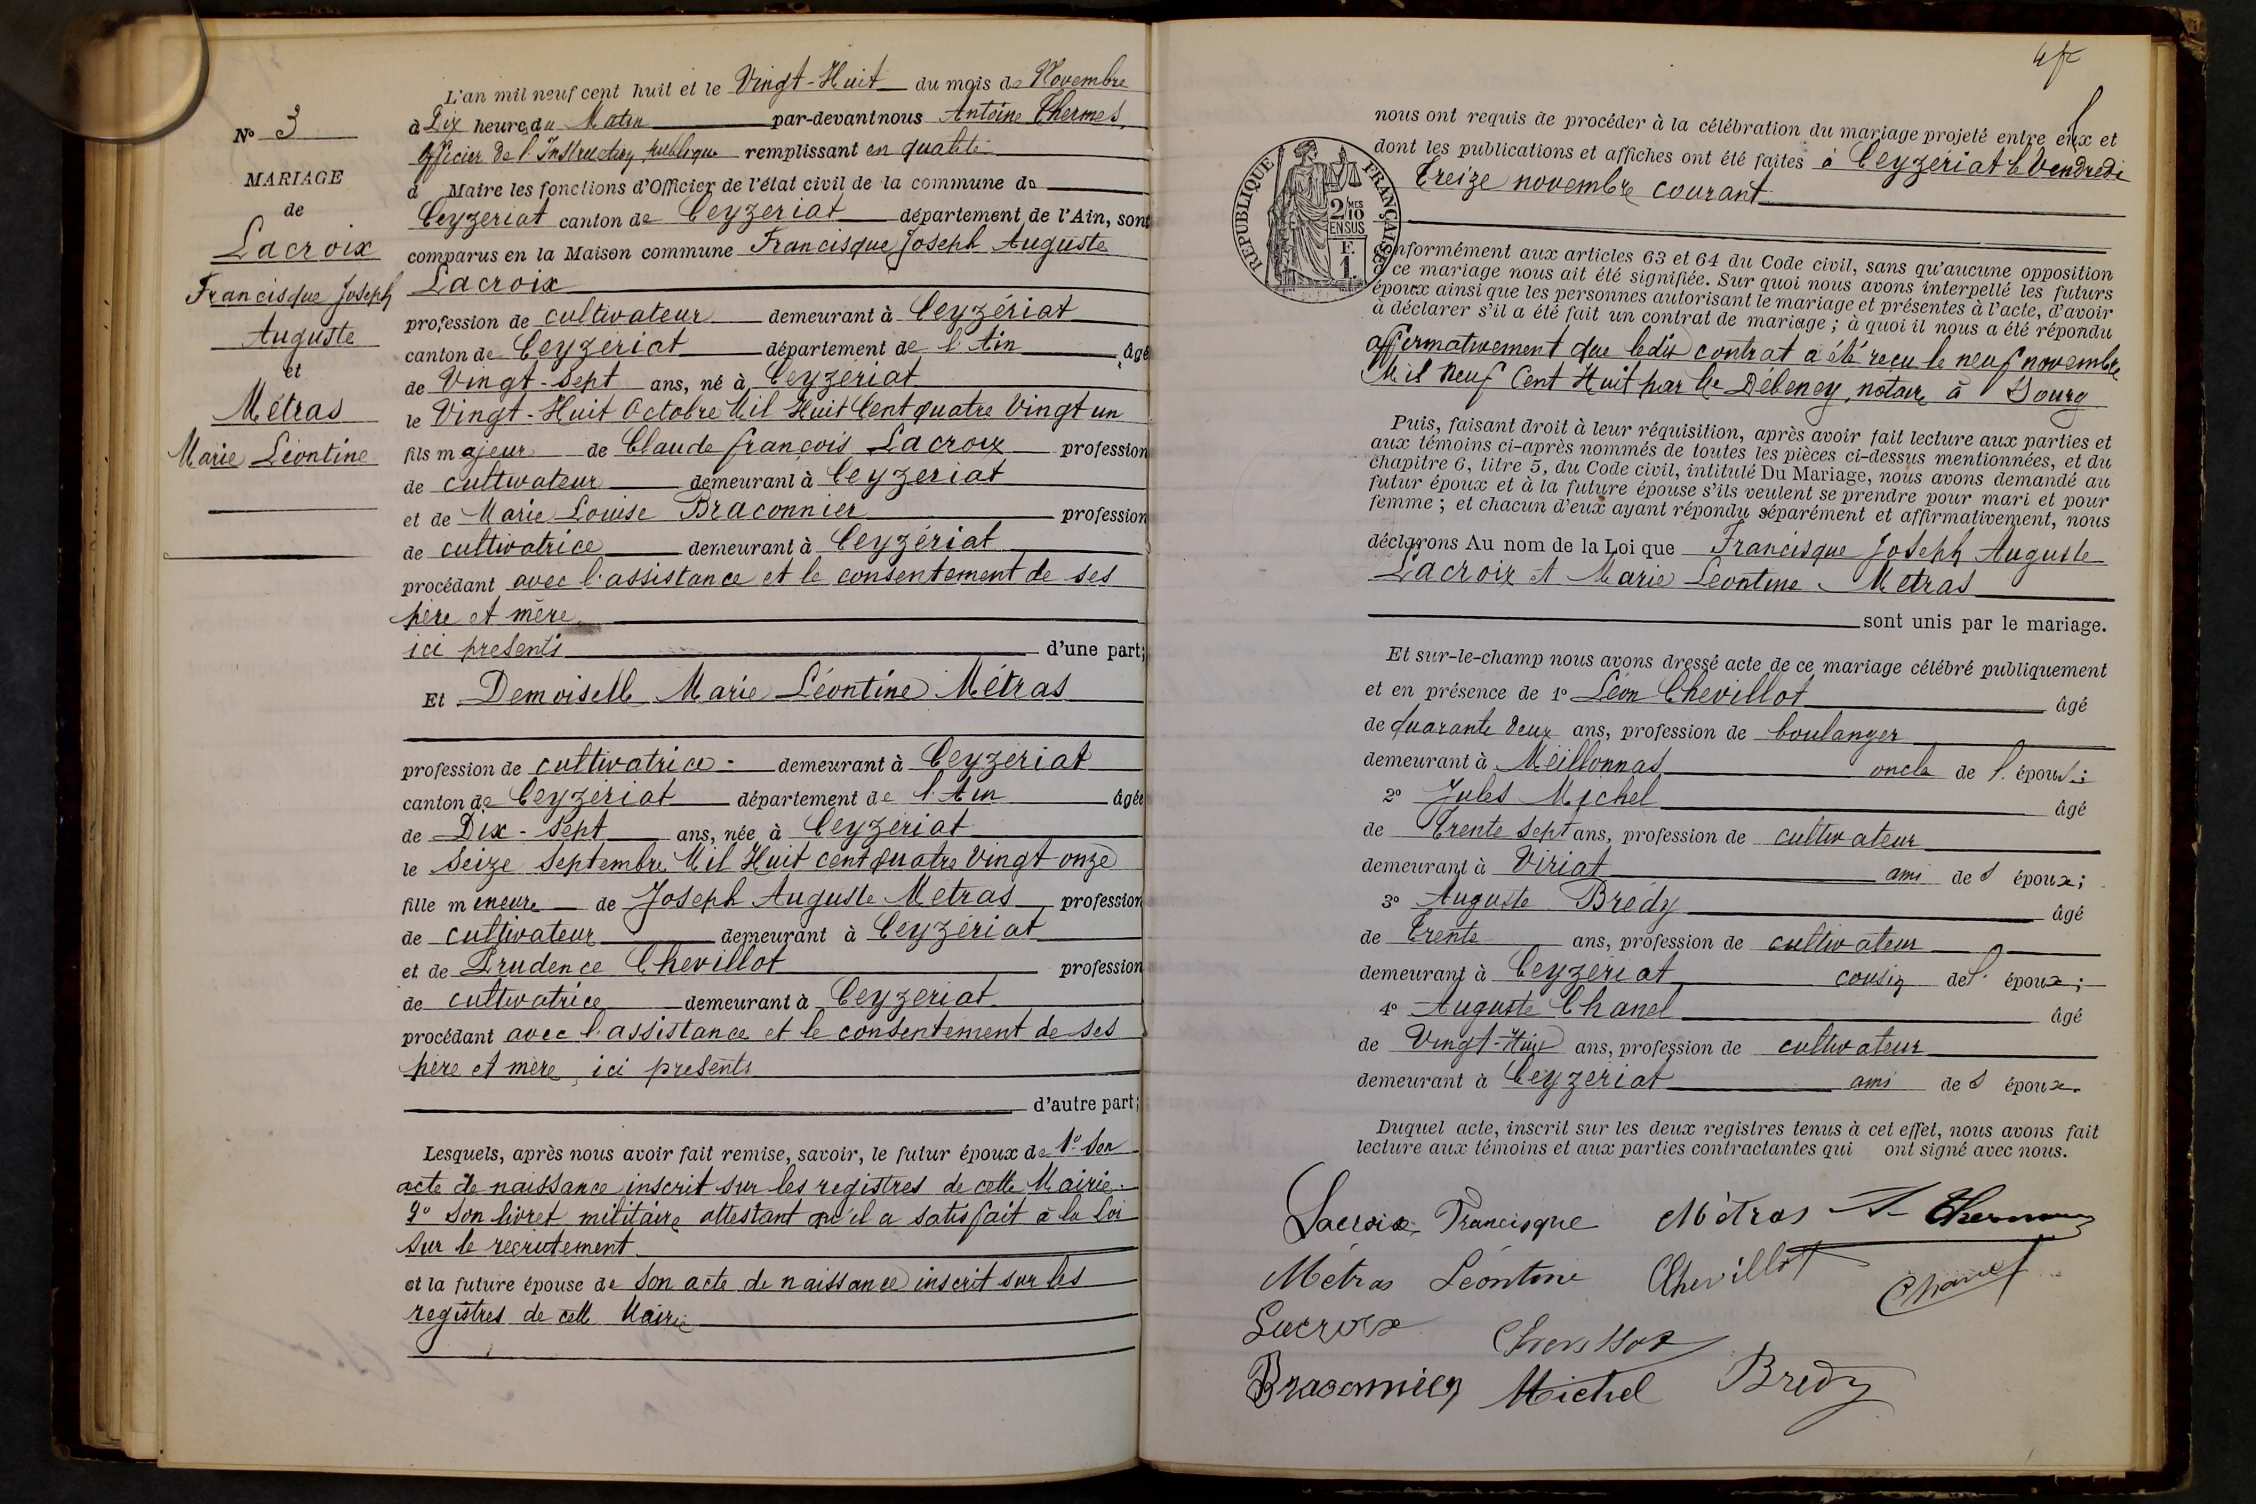 N° 3
MARIAGE
de
Lacroix
Francisque Joseph
Auguste
et
Métras
Marie Léontine
L'an mil neuf cent huit et le Vingt-Huit du mois de Novembre
à Dix heures du Matin par-devant nous Antoine Thermes,
officier de l'Instruction publique remplissant en qualité
d Maire les fonctions d'Officier de l'état civil de la commune de
Ceyzeriat canton de Ceyzeriat département de l'Ain, sont
comparus en la Maison commune Francisque Joseph Auguste
Lacroix
profession de cultivateur demeurant à Ceyzériat
canton de Ceyzeriat département de l'Ain âgé
de Vingt-sept ans, né à Ceyzeriat
le Vingt-Huit Octobre Mil Huit Cent quatre Vingt un
fils majeur de Claude françois Lacroix profession
de cultivateur demeurant à Ceyzeriat
et de Marie Louise Braconnier profession
de cultivatrice demeurant à Ceyzériat
procédant avec l'assistance et le consentement de ses
père et mère
ici presents d'une part;
Et Demoiselle Marie Léontine Métras
profession de cultivatrice - demeurant à Ceyzériat
canton de Ceyzériat département de l'Ain âgée
de Dix-sept ans, née à Ceyzeriat
le Seize Septembre Mil Huit cent quatre Vingt onze
fille mineure de Joseph Auguste Metras profession
de cultivateur demeurant à Ceyzériat
et de Prudence Chevillot profession
de cultivatrice demeurant à Ceyzeriat
procédant avec l'assistance et le consentement de ses
père et mère, ici presents
d'autre part;
Lesquels, après nous avoir fait remise, savoir, le futur époux de 1° Son
acte de naissance inscrit sur les registres de cette Mairie.
2° Son livret militaire attestant qu'il a satisfait à la Loi
sur le recrutement
et la future épouse de Son acte de naissance inscrit sur les
registres de cette Mairie
nous ont requis de procéder à la célébration du mariage projeté entre eux et
dont les publications et affiches ont été faites à Ceyzériat le Vendredi
Treize novembre courant
RÉPUBLIQUE FRANÇAISE
2 MES
10
EN SUS
F.
1.
Conformément aux articles 63 et 64 du Code civil, sans qu'aucune opposition
à ce mariage nous ait été signifiée. Sur quoi nous avons interpellé les futurs
époux ainsi que les personnes autorisant le mariage et présentes à l'acte, d'avoir
à déclarer s'il a été fait un contrat de mariage; à quoi il nous a été répondu
affirmativement que ledit contrat a été reçu le neuf novembre
Mil Neuf Cent Huit par Me Débeney, notaire à Bourg
Puis, faisant droit à leur réquisition, après avoir fait lecture aux parties et
aux témoins ci-après nommés de toutes les pièces ci-dessus mentionnées, et du
chapitre 6, titre 5, du Code civil, intitulé Du Mariage, nous avons demandé au
futur époux et à la future épouse s'ils veulent se prendre pour mari et pour
femme; et chacun d'eux ayant répondu séparément et affirmativement, nous
déclarons Au nom de la Loi que Francisque Joseph Auguste
Lacroix et Marie Léontine Metras
sont unis par le mariage.
Et sur-le-champ nous avons dressé acte de ce mariage célébré publiquement
et en présence de 1° Léon Chevillot âgé
de quarante deux ans, profession de boulanger
demeurant à Meillonnas oncle de l'épouse;
2° Jules Michel âgé
de Trente sept ans, profession de cultivateur
demeurant à Viriat ami des époux;
3° Auguste Brédy âgé
de Trente ans, profession de cultivateur
demeurant à Ceyzériat cousin de l'époux;
4° Auguste Chanel âgé
de Vingt-Huit ans, profession de cultivateur
demeurant à Ceyzeriat ami des époux.
Duquel acte, inscrit sur les deux registres tenus à cet effet, nous avons fait
lecture aux témoins et aux parties contractantes qui ont signé avec nous.
Lacroix Francisque Métras A Thermes
Métras Léontine Chevillot Chanel
Lacroix Chevillot
Braconnier Michel Brédy